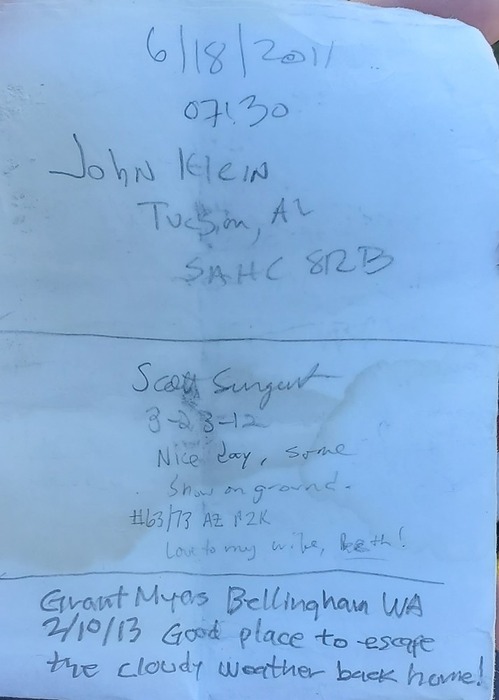 6/18/2011
07:30
John Klein
Tucson, AZ
SAHC 8RB
Scott Surgent
3-23-12
Nice day, some
Snow on ground.
#63/73 AZ P2K
Love to my wife, Beth!
Grant Myers Bellingham WA
2/10/13 Good place to escape
the cloudy weather back home!